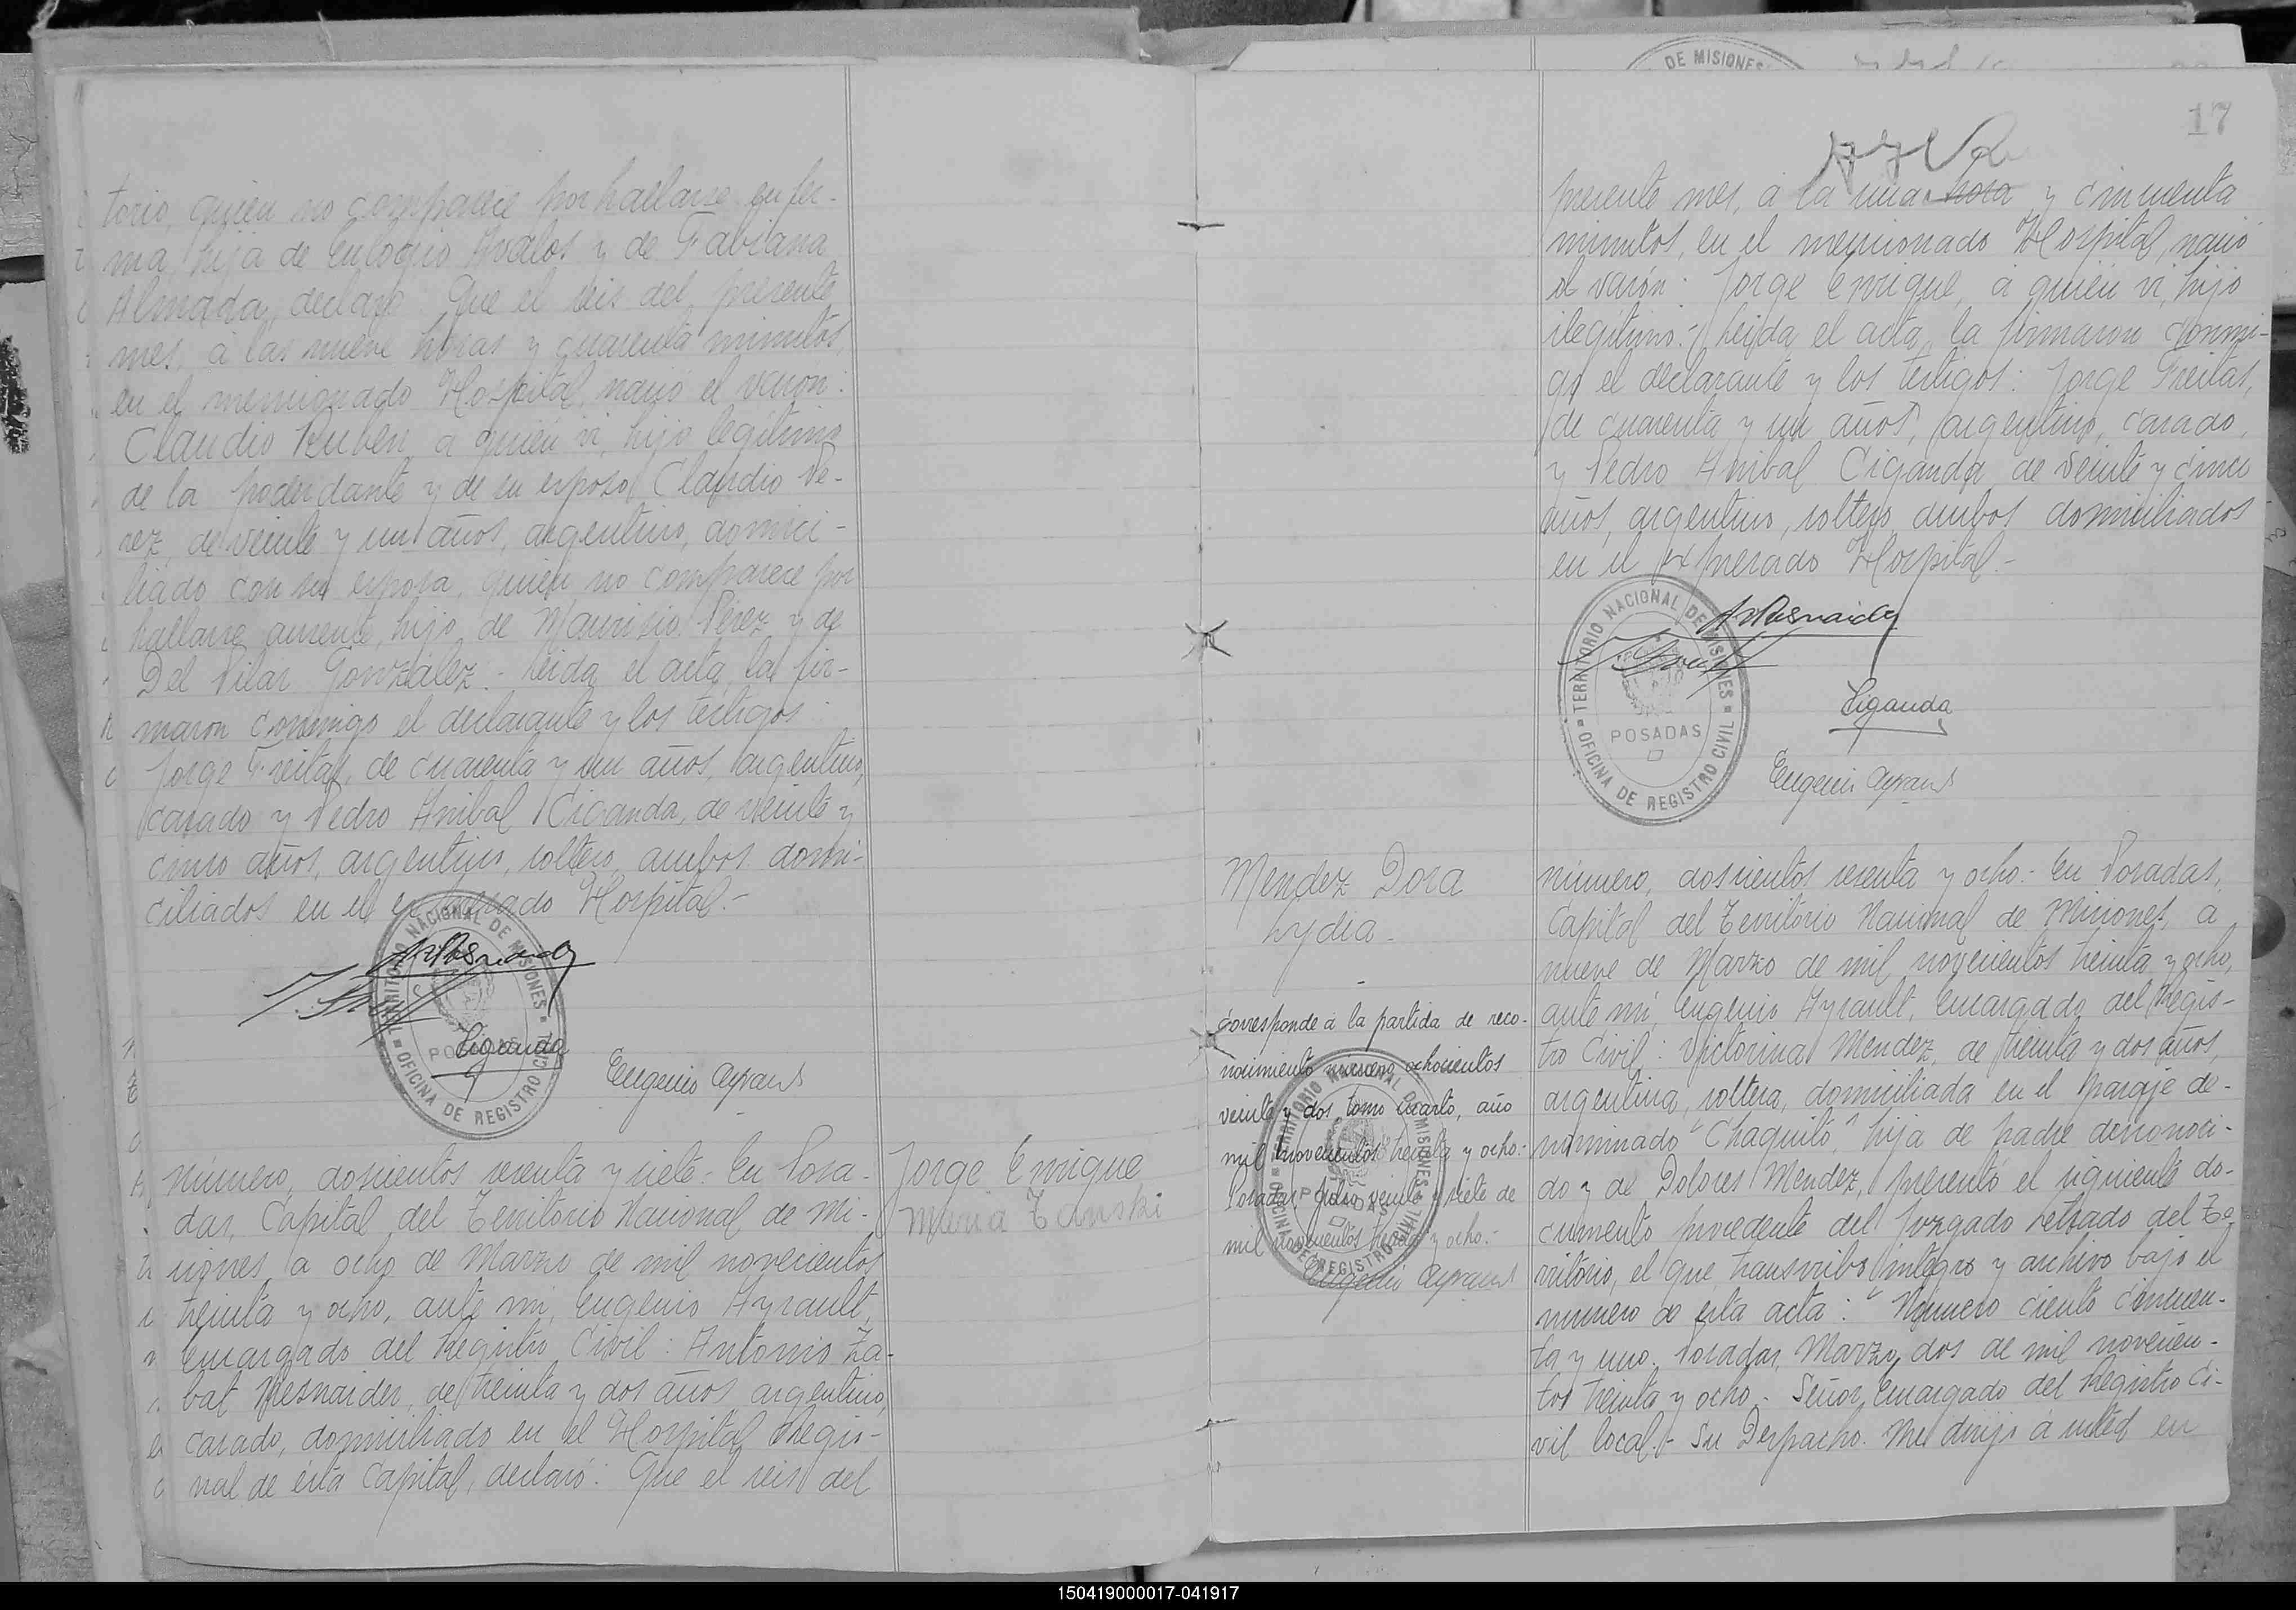 torio, quien no comparece por hallarse enfer-
ma, hija de Eulogio Avalos y de Fabiana
Almada, declaró: Que el seis del presente
mes, a las nueve horas y cuarenta minutos,
en el mencionado Hospital, nació el varón:
Claudio Ruben, a quien vi, hijo legítimo
de la poderdante y de su esposo Claudio Pe-
rez, de veinte y un años, argentino, domici-
liado con su esposa, quien no comparece por
hallarse ausente, hijo de Mauricio Pérez y de
Del Pilar González.- Leida el acta, la fir-
maron conmigo el declarante y los testigos:
Jorge Freitas, de cuarenta y un años, argentino,
casado y Pedro Anibal Ciganda, de veinte y
cinco años, argentino, soltero, ambos domi-
ciliados en el expresado Hospital.-
TERRITORIO NACIONAL DE MISIONES
POSADAS
OFICINA DE REGISTRO CIVIL
Ciganda
Eugenio Ayrault
Número, doscientos sesenta y siete.- En Posa-
das, Capital del Territorio Nacional de Mi-
siones, a ocho de Marzo de mil novecientos
treinta y ocho, ante mi, Eugenio Ayrault,
Encargado del Registro Civil: Antonio Za-
bat Resnaider, de treinta y dos años, argentino,
casado, domiciliado en el Hospital Regio-
nal de ésta Capital, declaró: Que el seis del
Jorge Enrique
Maria
DE MISIONES
17
presente mes, a la una hora y cincuenta
minutos, en el mencionado Hospital, nació
el varón: Jorge Enrique, a quien vi, hijo
ilegítimo.- Leida el acta, la firmaron conmi-
go el declarante y los testigos: Jorge Freitas,
de cuarenta y un años, argentino, casado,
y Pedro Anibal Ciganda, de veinte y cinco
años, argentino, soltero, ambos domiciliados
en el expresado Hospital.-
TERRITORIO NACIONAL DE MISIONES
POSADAS
OFICINA DE REGISTRO CIVIL
Ciganda
Eugenio Ayrault
Mendez Dora
Lydia.-
Corresponde a la partida de reco-
nocimiento número ochocientos
veinte y dos, tomo cuarto, año
mil novecientos treinta y ocho.-
Posadas, Julio veinte y siete de
mil novecientos treinta y ocho.-
Eugenio Ayrault
TERRITORIO NACIONAL DE MISIONES
POSADAS
OFICINA DE REGISTRO CIVIL
Número, doscientos sesenta y ocho.- En Posadas,
Capital del Territorio Nacional de Misiones, a
nueve de Marzo de mil novecientos treinta y ocho,
ante mi, Eugenio Ayrault, Encargado del Regis-
tro Civil: Victorina Mendez, de treinta y dos años,
argentina, soltera, domiciliada en el paraje de-
nominado "Chaquito", hija de padre desconoci-
do y de Dolores Mendez, presentó el siguiente do-
cumento procedente del Juzgado Letrado del Te-
rritorio, el que transcribo íntegro y archivo bajo el
número de esta acta: "Número ciento cincuen-
ta y uno. Posadas, Marzo, dos de mil novecien-
tos treinta y ocho.- Señor Encargado del Registro Ci-
vil local.- Su Despacho. Me dirijo a usted en